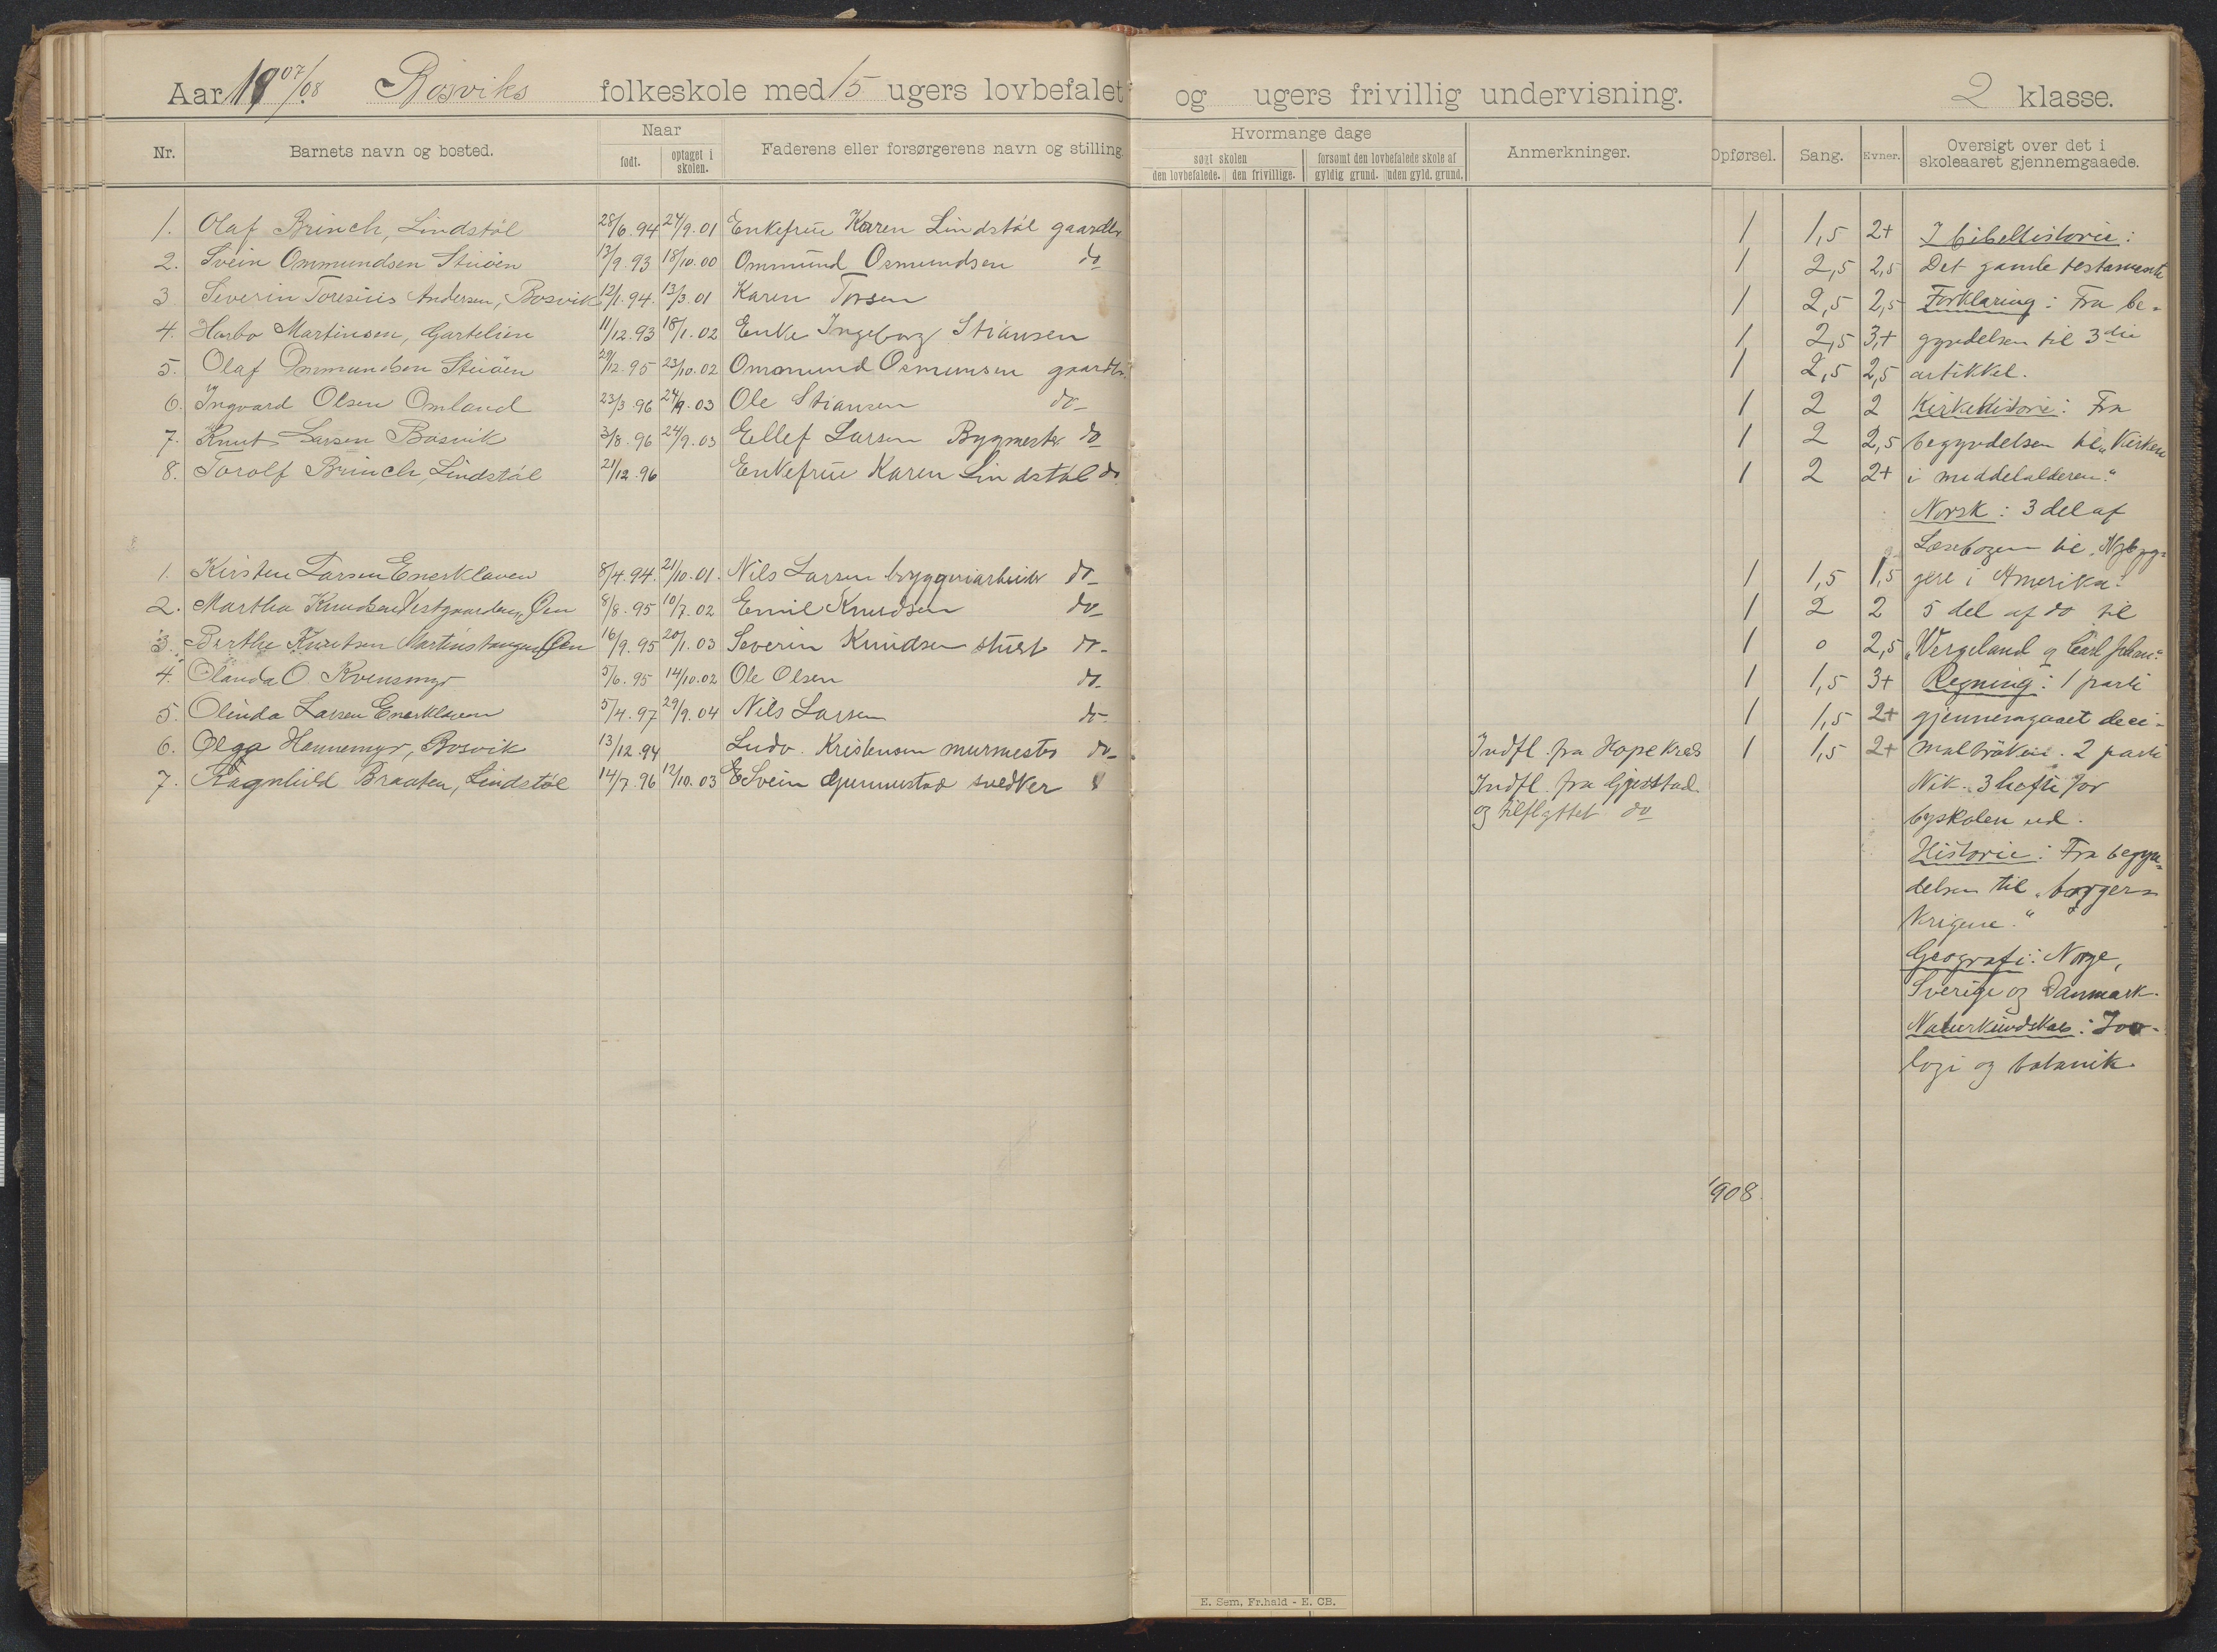 Aar 1907/08 Bosviks folkeskole med 15 ugers lovbefalet og ugers frivillig undervisning. 2 klasse.
Nr. Barnets navn og bosted. Naar født. optaget i skolen. Faderens eller forsørgerens navn og stilling.
Hvormange dage søgt skolen den lovbefalede. den frivillige. forsømt den lovbefalede skole af gyldig grund. uden gyld. grund. Anmerkninger. Opførsel. Sang. Evner. Oversigt over det i skoleaaret gjennemgaaede.
1. Olaf Brinch, Lindstøl 28/6.94 24/9.01 Enkefrue Karen Lindstøl gaardbr 1 1,5 2+
2. Svein Ommundsen Stiöen 13/9.93 18/10.00 Ommund Osmundsen do 1 2,5 2,5
3 Severin Toresius Andersen, Bosvik 12/1.94. 13/3.01 Karen Torsen 1 2,5 2,5
4. Harbo Martinsen, Gartelien 11/12.93 18/1.02 Enke Ingeborg Stiansen 1 2,5 3+
5. Olaf Ommundsen Stiöen 29/12.95 23/10.02 Ommund Osmunsen gaardbr. 1 2,5 2,5
6. Ingvard Olsen Omland 23/3.96 24/9.03 Ole Stiansen do- 1 2 2
7. Knut Larsen Bosvik 3/8.96 24/9.03 Ellef Larsen Bygmester do 1 2 2,5
8. Torolf Brinch, Lindstøl 21/12.96 Enkefrue Karen Lindstøl do 1 2 2+
1. Kirsten Larsen Enerklaven 8/4.94. 21/10.01. Nils Larsen bryggeriarbeider do- 1 1,5 1,5
2. Martha Knudsen Vestgaarden, Øen 8/8.95 10/7.02 Emil Knudsen do- 1 2 2
3. Berthe Knutsen Martinstangen Øen 16/9.95 20/1.03 Severin Knudsen do- 1 0 2,5
4. Olanda O. Kvensmyr 5/6.95 14/10.02 Ole Olsen do- 1 1,5 3+
5. Olinda Larsen Enerklaven 5/4.97 29/9.04 Nils Larsen do- 1 1,5 2+
6. Olga Hennemyr, Bosvik 13/12.94 Ludv. Kristensen murmester do- Indfl. fra Hope kreds 1 1,5 2+
7. Ragnhild Braaten, Lindstøl 14/7.96 12/10.03 Svein Gjennestad snedker Indfl. fra Gjerstad
og tilflyttet do
I bibelhistorie:
Det gamle testamente
Forklaring: Fra be-
gyndelsen til 3die
artikkel.
Kirkehistorie: Fra
begyndelsen til „Kirken
i middelalderen."
Norsk: 3 del af
Læsebogen til „Nybyg-
gere i Amerika."
5 del af do til
„Wergeland og Carl Johan."
Regning: 1 parti
gjennemgaaet deci-
malbrøken. 2 parti
Nik. 3 hefte for
byskolen ud.
Historie: Fra begyn-
delsen til „borger-
krigene."
Geografi: Norge,
Sverige og Danmark.
Naturkundskab: Zoo-
logi og botanik.
1908.
E. Sem, Fr.hald - E. CB.